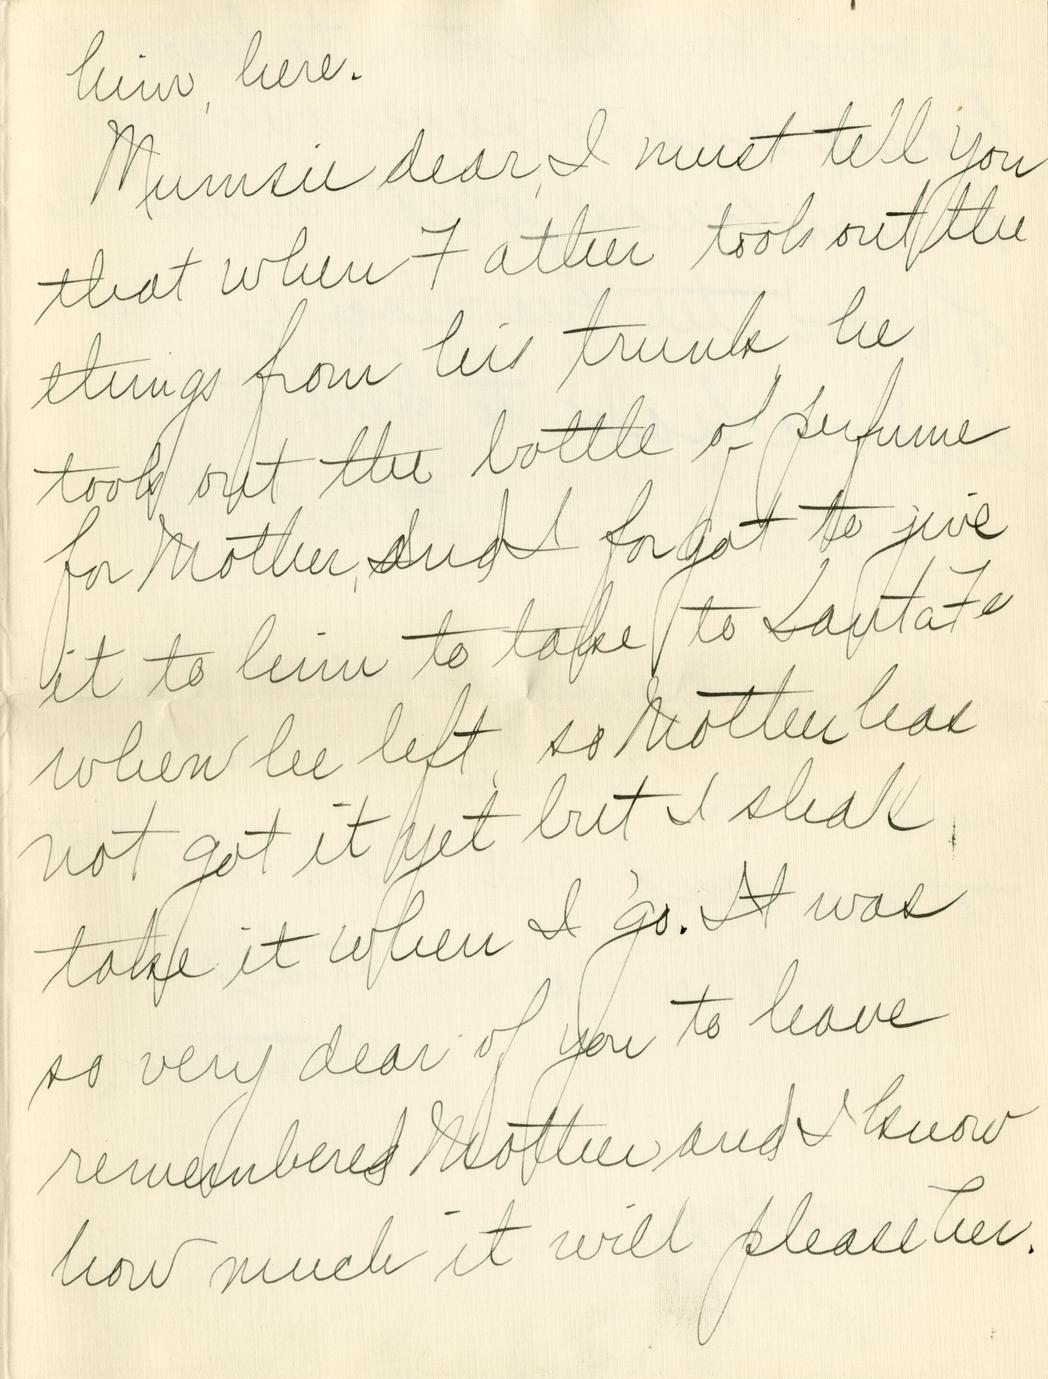 him, here.
Mumsie dear, I must tell you
that when Father took out the
things from his trunk he
took out the bottle of perfume
for Mother, and I forgot to give
it to him to take to Santa Fe
when he left, so Mother has
not got it yet but I shall
take it when I go. It was
so very dear of you to have
remembered Mother and I know
how much it will please her.